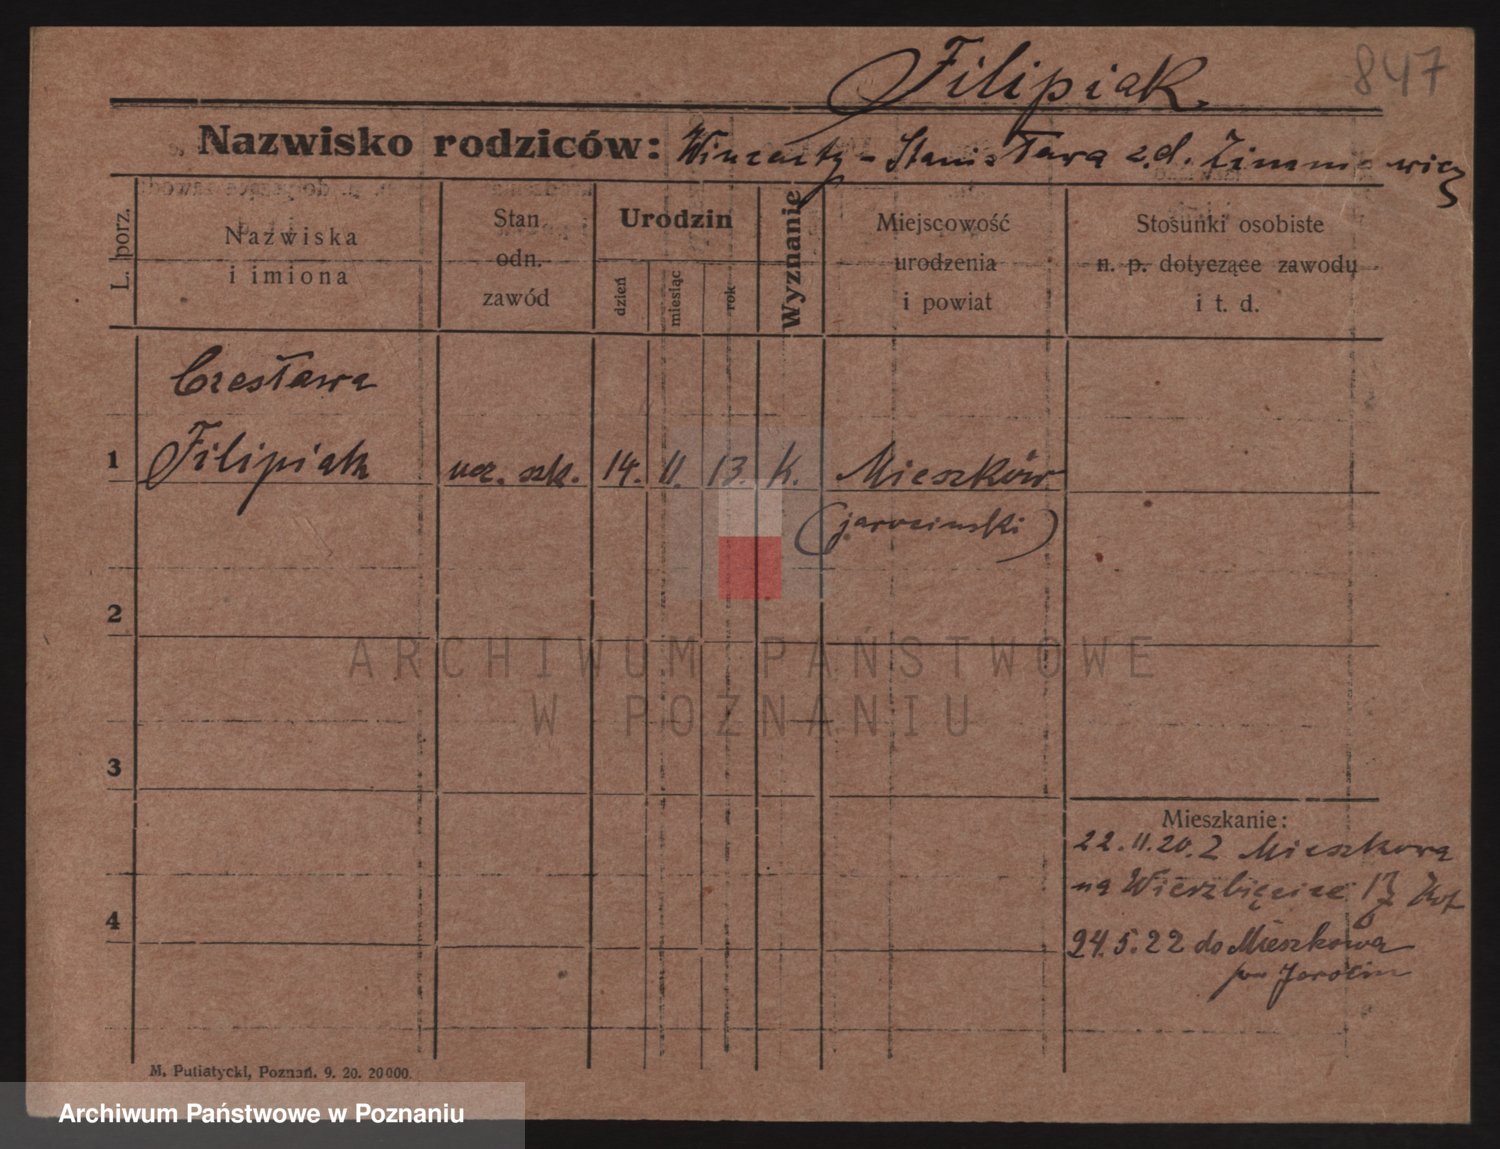 847
Filipiak
Nazwisko rodziców: Wincenty - Stanisława z.d. Zimniewicz
L. porz.
Nazwiska
i imiona
Stan
odn.
zawód
Urodzin
dzień
miesiąc
rok
Wyznanie
Miejscowość
urodzenia
i powiat
Stosunki osobiste
n. p. dotyczące zawodu
i t. d.
Czesława
1 Filipiak ucz. szk. 14. 11. 13. K. Mieszków
(jarociński)
2
3
Mieszkanie:
22.11.20. Z Mieszkowa
na Wierzbięcice 17
4
24.5.22 do Mieszkowa
pow Jarocin
M. Putiatycki, Poznań. 9. 20. 20000.
ARCHIWUM PAŃSTWOWE
W POZNANIU
Archiwum Państwowe w Poznaniu